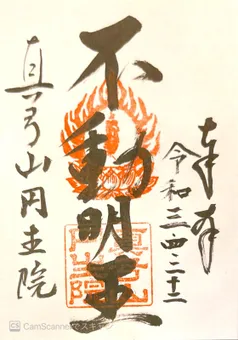 奉拝
令和三四・二十二
不動明王
真弓山円生院
真弓山
円生院
CS CamScannerでスキャン